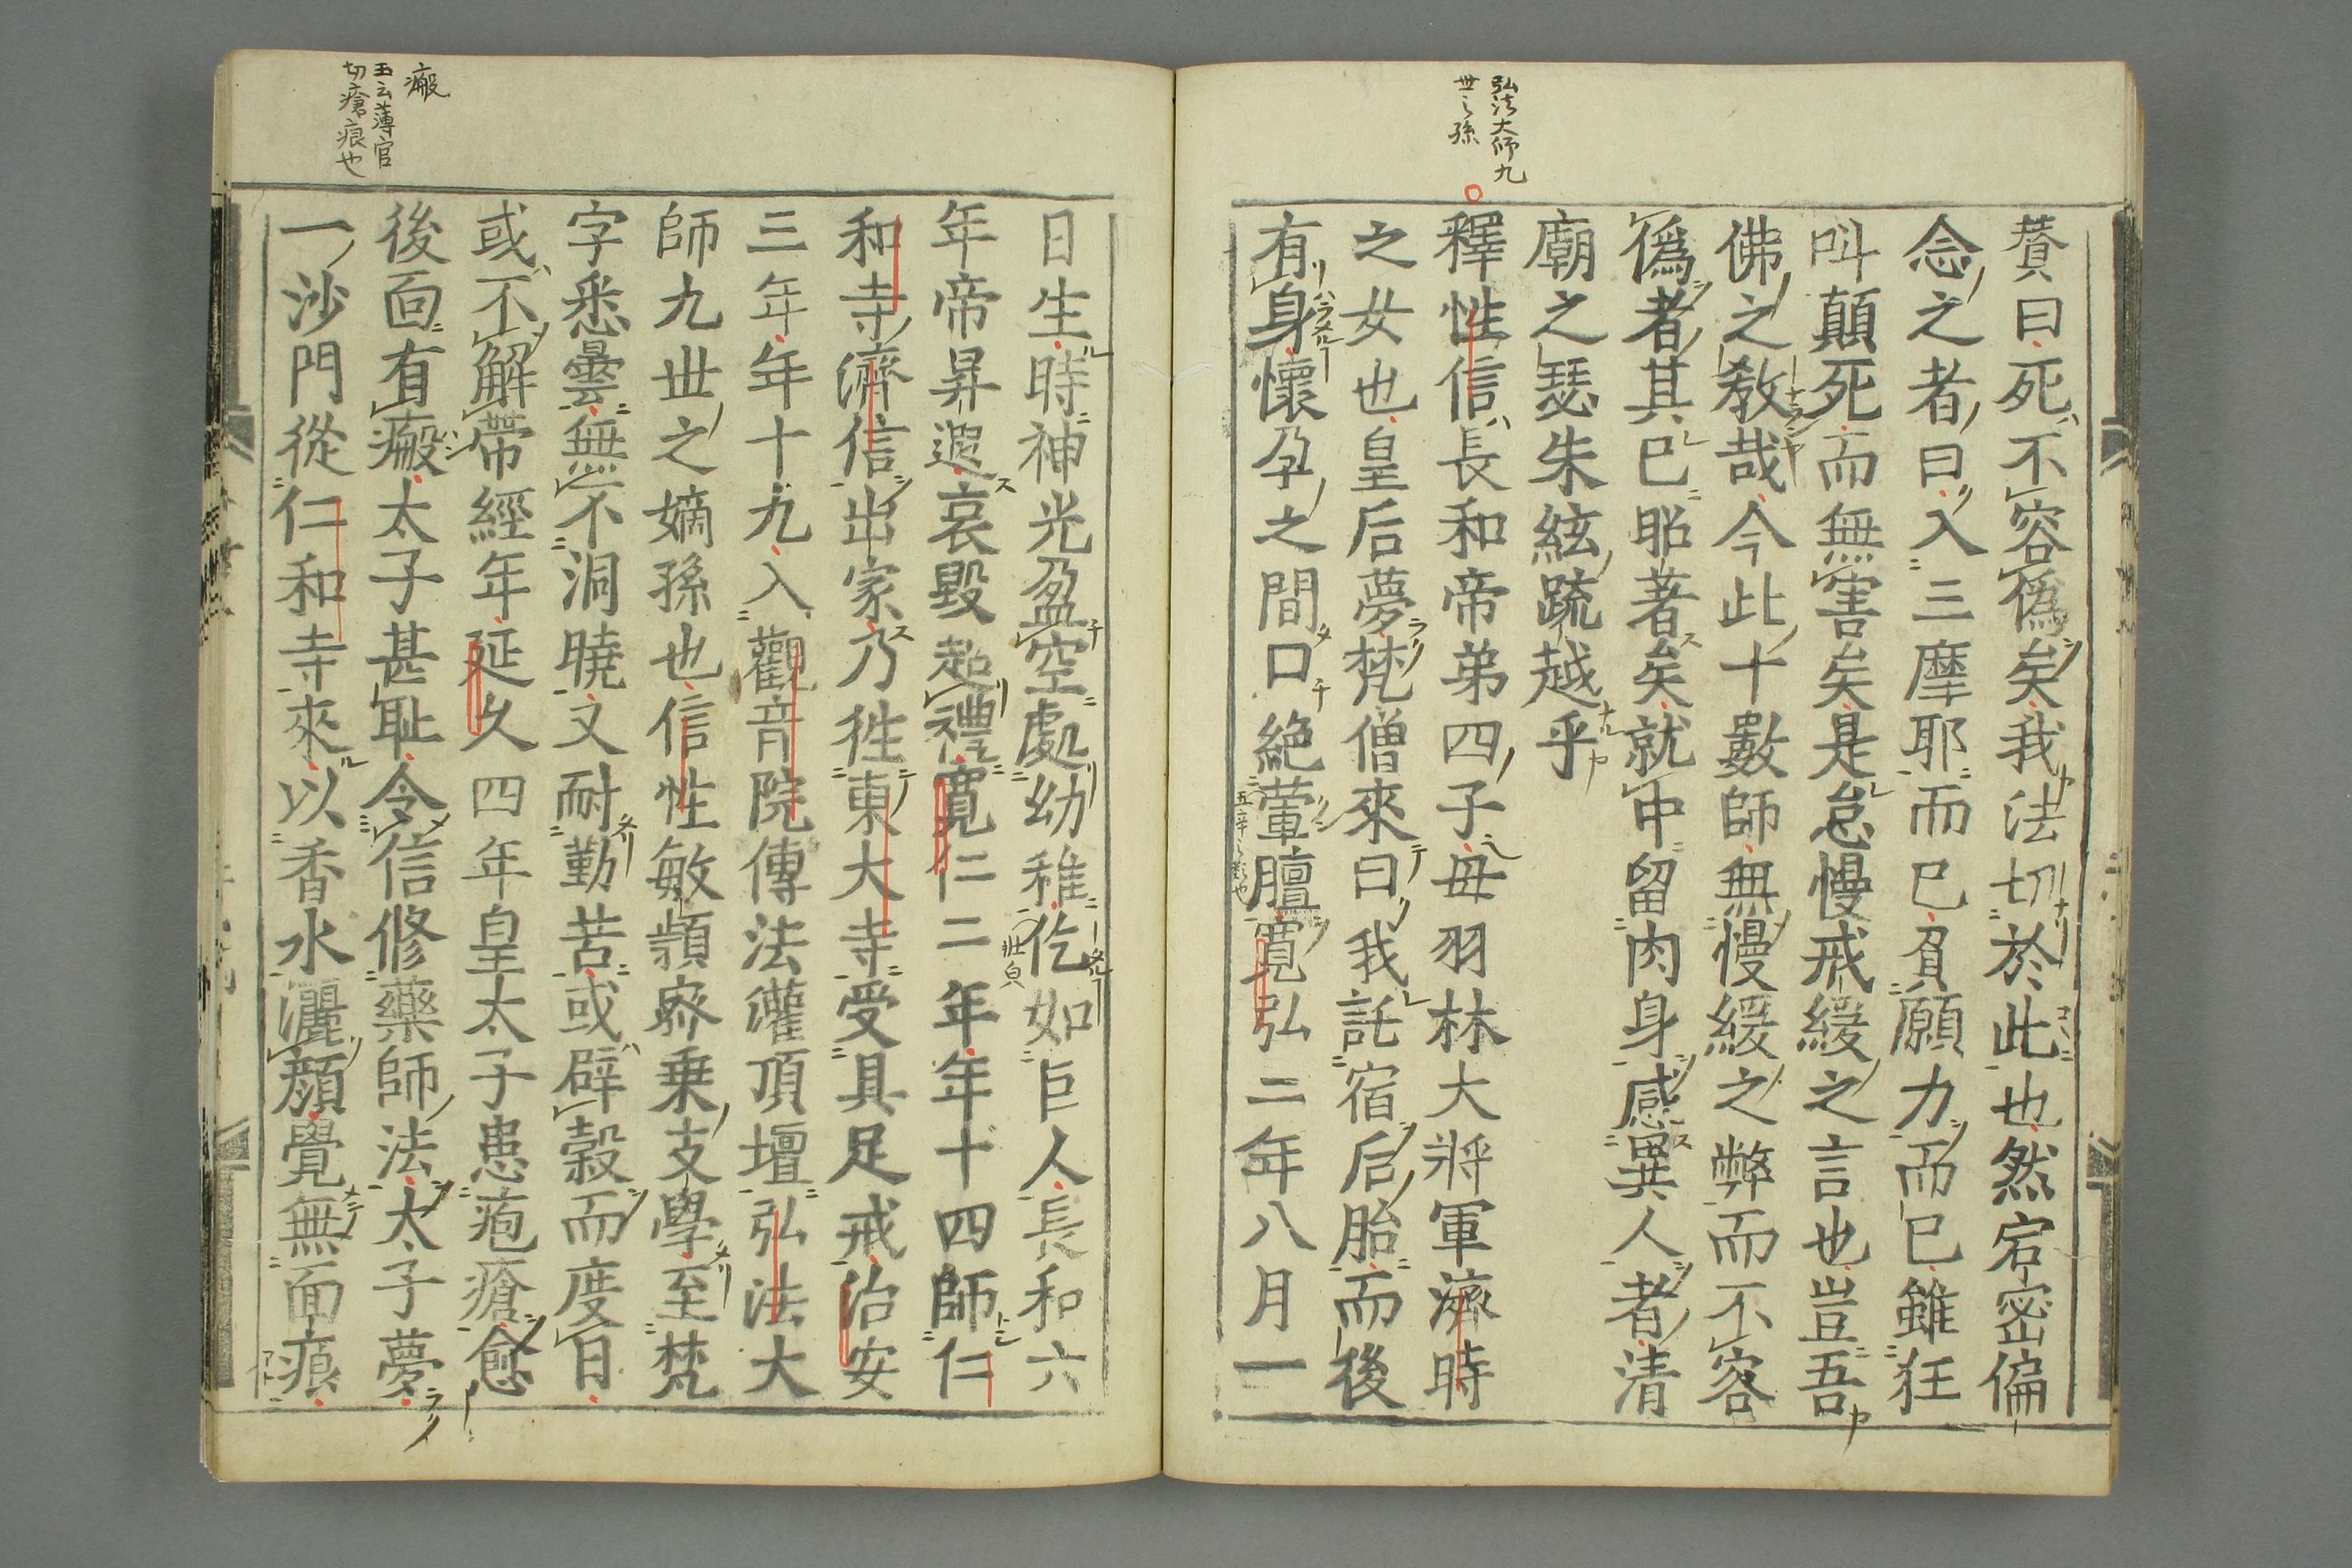 弘法大師九
世之孫
賛曰死不容偽矣我法切於此也然宕密偏
念之者曰入三摩耶而已負願力而已雖狂
叫顛死而無害矣是怠慢戒緩之言也豈吾
佛之教哉今此十數師無慢緩之弊而不容
偽者其已昭著矣就中留肉身感異人者清
廟之瑟朱絃疏越乎
釋性信長和帝弟四子母羽林大將軍濟時
之女也皇后夢梵僧來曰我託宿后胎而後
有身懷孕之間口絕葷膻寬弘二年八月一
日生時神光盈空處幼稚仡如巨人長和六
年帝昇遐哀毀超禮寬仁二年年十四師仁
和寺濟信出家乃徃東大寺受具足戒治安
三年年十九入觀音院傳法灌頂壇弘法大
師九世之嫡孫也信性敏頴窮乗支學至梵
字悉曇無不洞曉又耐勤苦或辟穀而度日
或不解帶經年延久四年皇太子患疱瘡愈
後面有瘢太子甚耻令信修藥師法太子夢
一沙門從仁和寺來以香水灑顔覺無面痕
瘢
玉云薄官
切瘡痕也